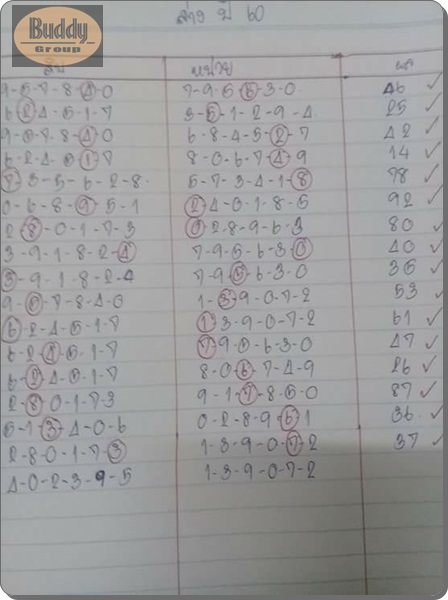 Buddy
Group
ล่าง ปี 60
สิบ หน่วย ผล
9-5-7-8-4-0 7-9-5-6-3-0 46 ✓
6-2-4-5-1-7 3-5-1-2-9-4 25 ✓
9-5-7-8-4-0 6-8-4-5-2-7 42 ✓
6-2-4-5-1-7 8-0-6-7-4-9 14 ✓
7-3-5-6-2-8 5-7-3-4-1-8 78 ✓
0-6-8-9-5-1 2-4-0-1-8-5 92 ✓
2-8-0-1-7-3 0-2-8-9-6-3 80 ✓
3-9-1-8-2-4 7-9-5-6-3-0 40 ✓
3-9-1-8-2-4 7-9-5-6-3-0 35 ✓
9-5-7-8-4-0 1-3-9-0-7-2 53 ✓
6-2-4-5-1-7 1-3-9-0-7-2 61 ✓
6-2-4-5-1-7 7-9-5-6-3-0 47 ✓
6-2-4-5-1-7 8-0-6-7-4-9 26 ✓
2-8-0-1-7-3 9-1-7-8-5-0 87 ✓
5-1-3-4-0-6 0-2-8-9-6-1 36 ✓
2-8-0-1-7-3 1-3-9-0-7-2 37 ✓
4-0-2-3-9-5 1-3-9-0-7-2